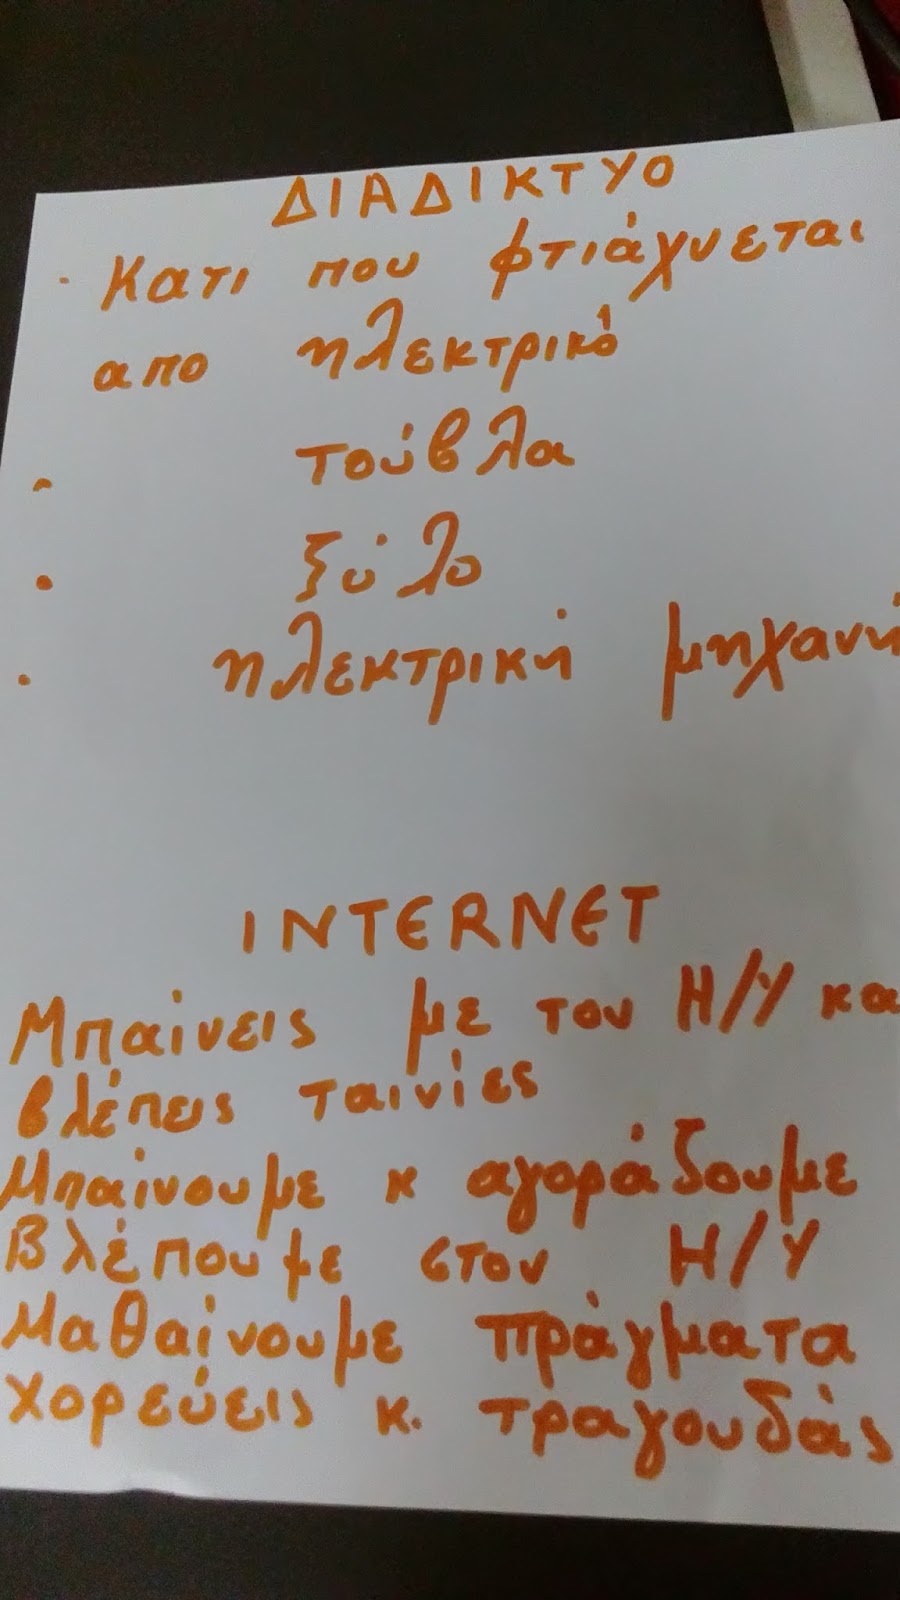 ΔΙΑΔΙΚΤΥΟ
· Κατι που φτιάχνεται
απο ηλεκτρικό
· τούβλα
· ξύλο
· ηλεκτρική μηχανή
INTERNET
Μπαίνεις με τον Η/Υ κα
βλέπεις ταινίες
Μπαίνουμε κ αγοράζουμε
Βλέπουμε στον Η/Υ
Μαθαίνουμε πράγματα
χορεύεις κ. τραγουδάς